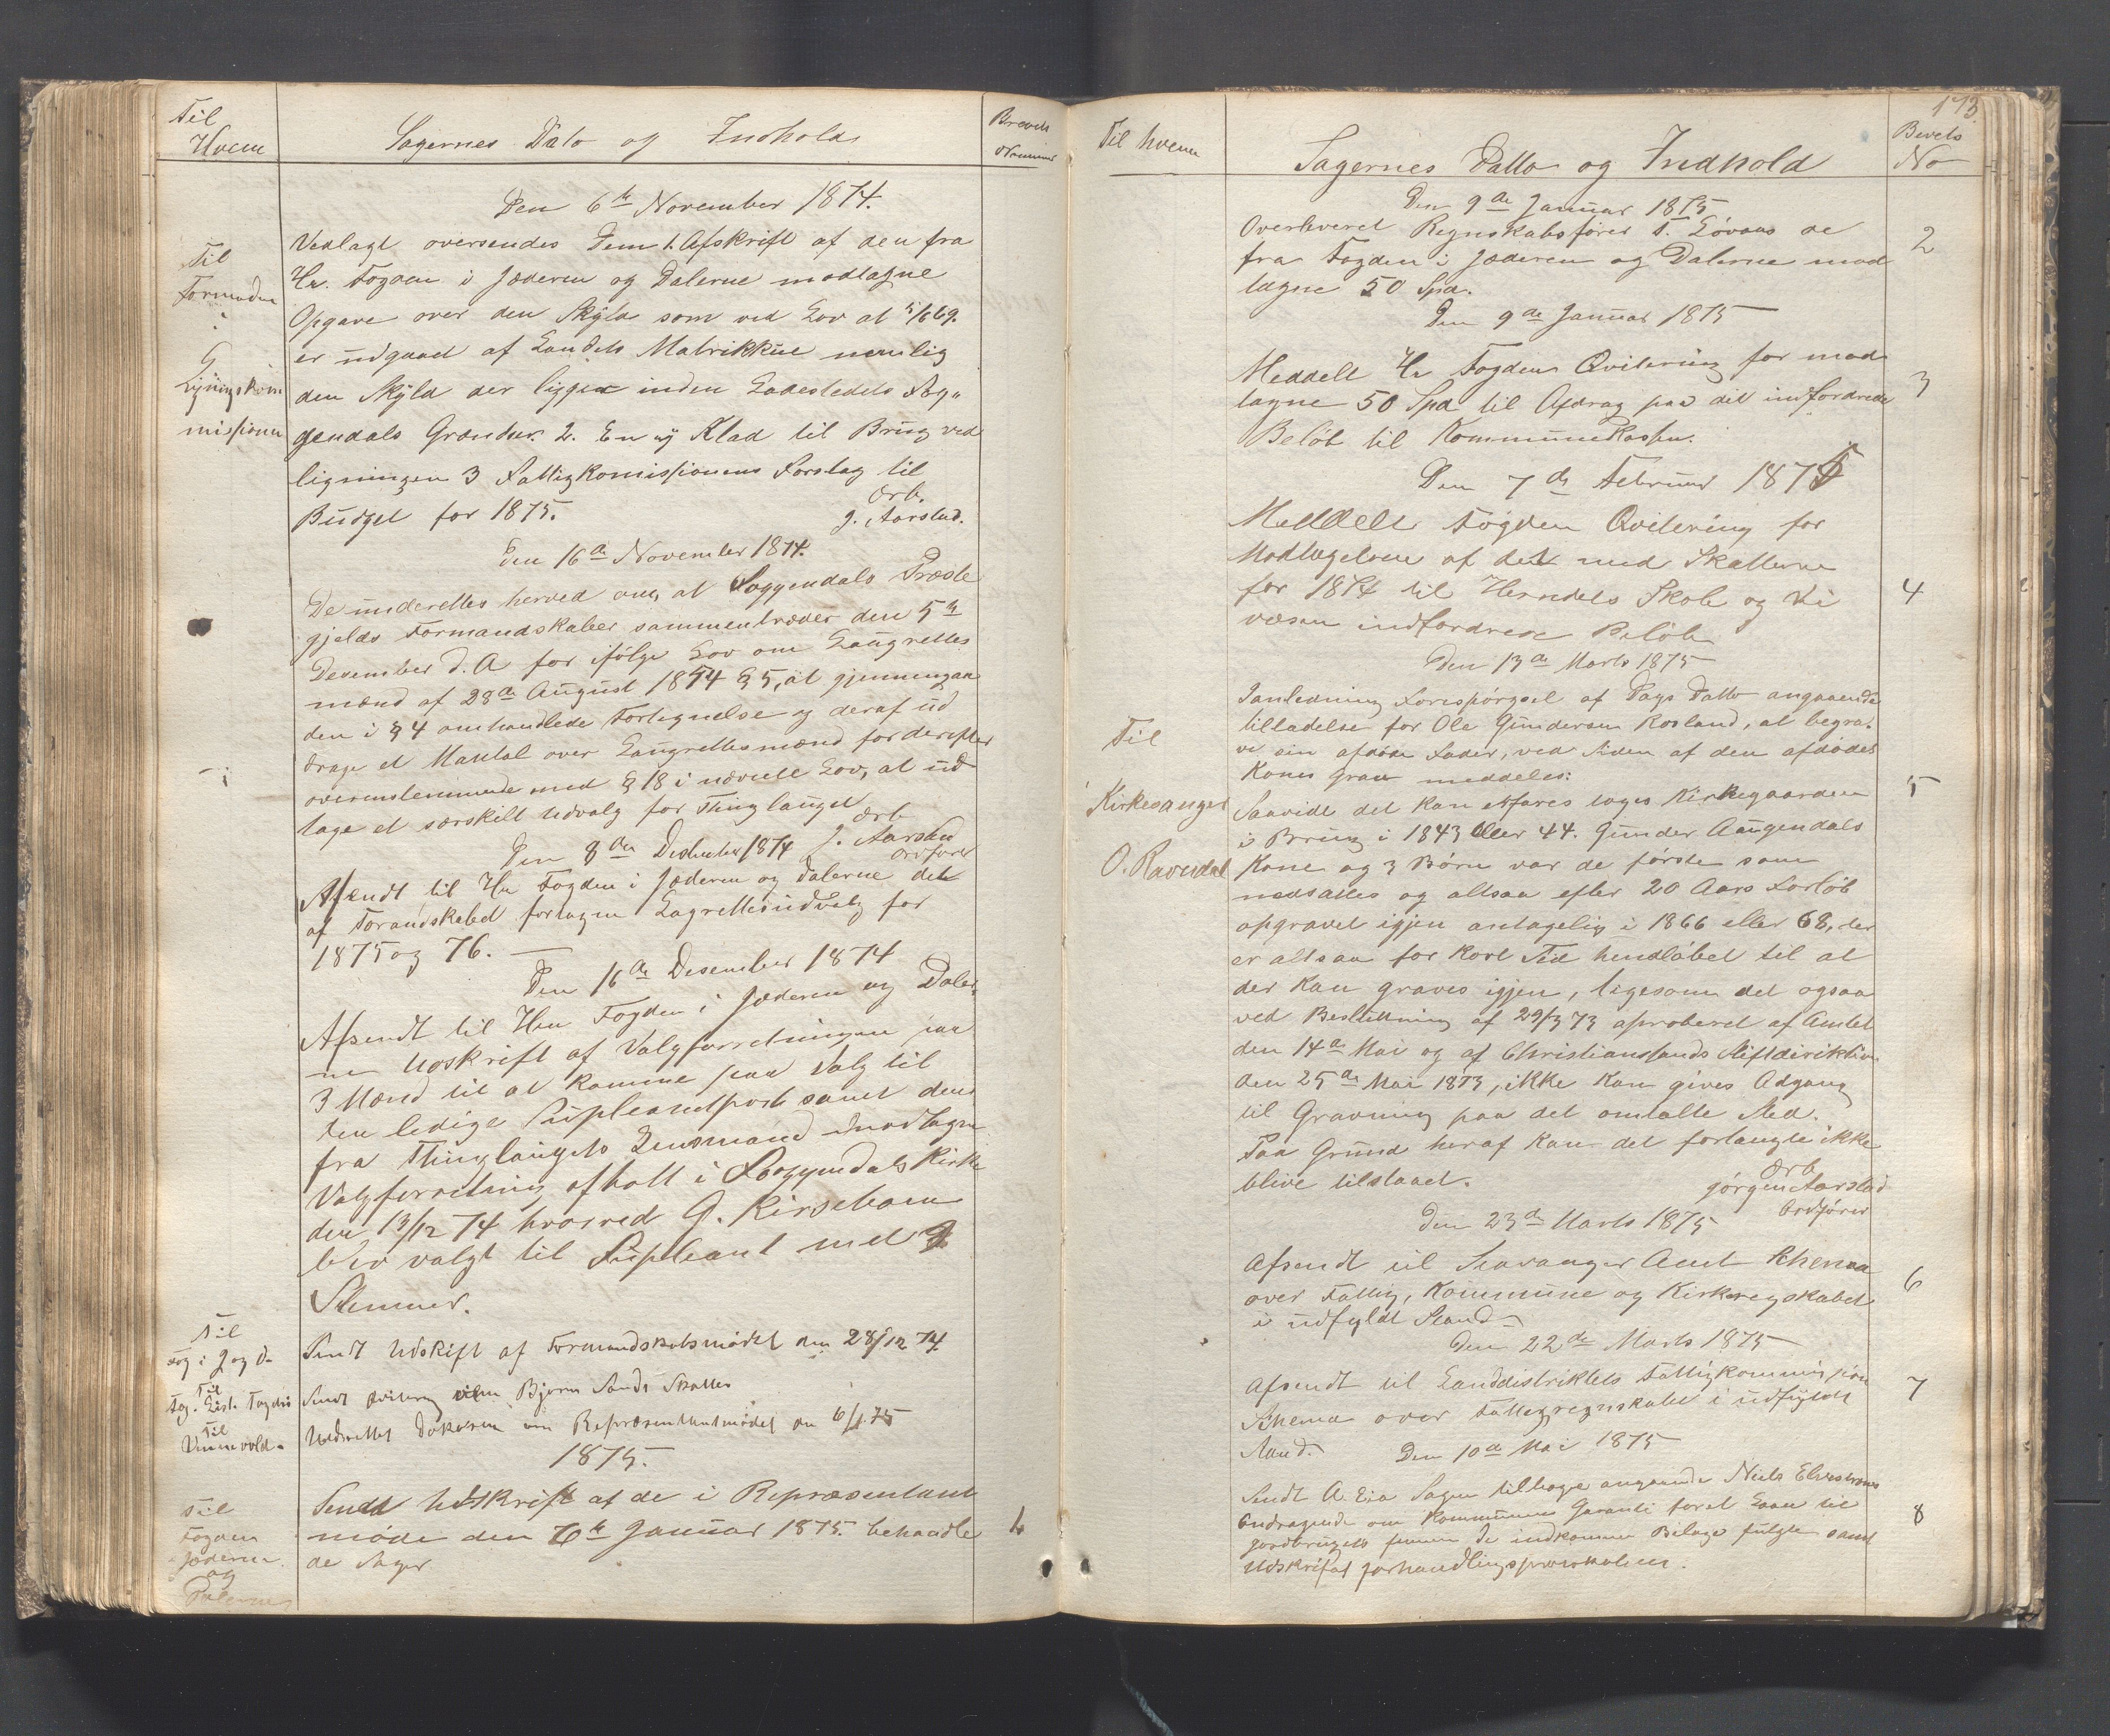 Til
Hvem
Sagernes Dato og Indhold
Brevets
Nummer
Den 6te November 1874.
Til
Formanden
i
Ligningskom
missionen
Vedlagt oversendes Dem 1. Afskrift af den fra
Hr. Fogden i Jæderen og Dalerne modtagne
Opgave over den Skyld som ved Lov at 5/6 69.
er udgaaet af Landets Matrikkul nemlig
den Skyld der ligger inden Ladestedets Sog„
gendals Grændser. 2. En ny Klad til Brug ved
ligningen 3 Fattigkomissionens Forslag til
Budget for 1875.
ærb.
J. Aarstad.
Den 16de November 1874.
De underettes herved om, at Soggendals Præste
gjelds Formandskaber sammentræder den 5te
Desember d. A for ifølge Lov om Laugrettes
mænd af 28de August 1854 § 5, at gjennemgaa
den i § 4 omhandlede Fortegnelse og deraf ud
drage et Mantal over Laugrettesmænd for derefter
overenstemmende med § 18 i nævnte Lov, at ud
tage et særskilt Udvalg for Thinglauget
ærb
J. Aarstad
Ordfører
Den 8de Desember 1874
Afsendt til Hr Fogden i Jæderen og Dalerne det
af Forandskabet fortagne Lagrettesudvalg for
1875 og 76.
Den 16de Desember 1874
Afsendt til Herr Fogden i Jæderen og Daler„
ne Udskrift af Valgforretningen paa
3 Mænd til at komme paa Valg til
den ledige Supleantpost samt den
fra Thinglaugets Lensmand modtagne
Valgforretning afholt i Soggendals Kirke
den 13/12 74 hvorved G. Kirsebom
blev valgt til Supleant med 9
Stemmer.
Til
Fog i J og D.
Sendt Udskrift af Formandskabsmødet den 28/12 74.
Til
Fog. List. Fogdri
Sendt Qvitering Bjørn Sands Skatter
Til
Vinnevold.
Underrettet om Repræsentantmødet den 6/1 75
1875.
Til
Fogden
Jæderen
og
Dalerne
Sendt Udskrift af de i Repræsentant
møde den 6te Januar 1875. behandle
de Sager
1
173.
Til hvem
Sagernes Datto og Indhold
Brevets
No
Den 9de Januar 1875
Overleveret Regnskabsfører T. Løvaas de
fra Fogden i Jæderen og Dalerne mod
tagne 50 Spd.
2
Den 9de Januar 1875
Meddelt Hr Fogden Qvitering for mod
tagne 50 Spd til Afdrag paa dit indfordrede
Beløb til Kommunekassen.
3
Den 7de Februar 1875
Meddelt Fogden Qvitering for
Modtagelsen af det med Skatterne
for 1874 til Herredets Skole og Ve
væsen indfordrede Beløb
4
Den 13de Marts 1875
Til
Kirkesanger
O. Ravndal
Ianledning Forespørgsel af Dags Datto angaaende
tilladelse for Ole Gundersen Rosland, at begra„
ve sin afdøde Fader, ved Siden af den afdødes
Kones grav meddeles:
Saavidt det kan erfares toges Kirkegaarden
i Brug i 1843 eller 44. Gunder Aaugendals
Kone og 3 Børn var de første som
nedsattes og altsaa efter 20 Aars Forløb
opgravet igjen antagelig i 1866 eller 68, der
er altsaa for kort Tid hendløbet til at
der kan graves igjen, ligesom det ogsaa
ved Beslutning af 29/3 73 aproberet af Amtet
den 14de Mai og af Christianssands Stiftdiriktion
den 25de Mai 1873, ikke kan gives Adgang
til Gravning paa det omtalte Sted.
Paa Grund heraf kan det forlangte ikke
blive tilstaaet.
5
ærb
Jørgen Aarstad
Ordfører
Den 23de Marts 1875
Afsendt til Stavanger Amt Schema
over Fattig, Kommune og Kirkeregskabet
i udfyldt Stand
6
Den 22de Marts 1875
Afsendt til Landdistriktets Fattigkommission
Schema over Fattigregnskabet i udfyldt
Stand.
7
Den 10de Mai 1875
Sendt A. Eia Sagen tilbage angaaende Niels Elvestrøms
Andragende om Kommunens Garanti foret Laan til
Jordbrugets fremme De indkomne Bilage fulgte samt
Udskrifat forhandlingsprotokolen.
8